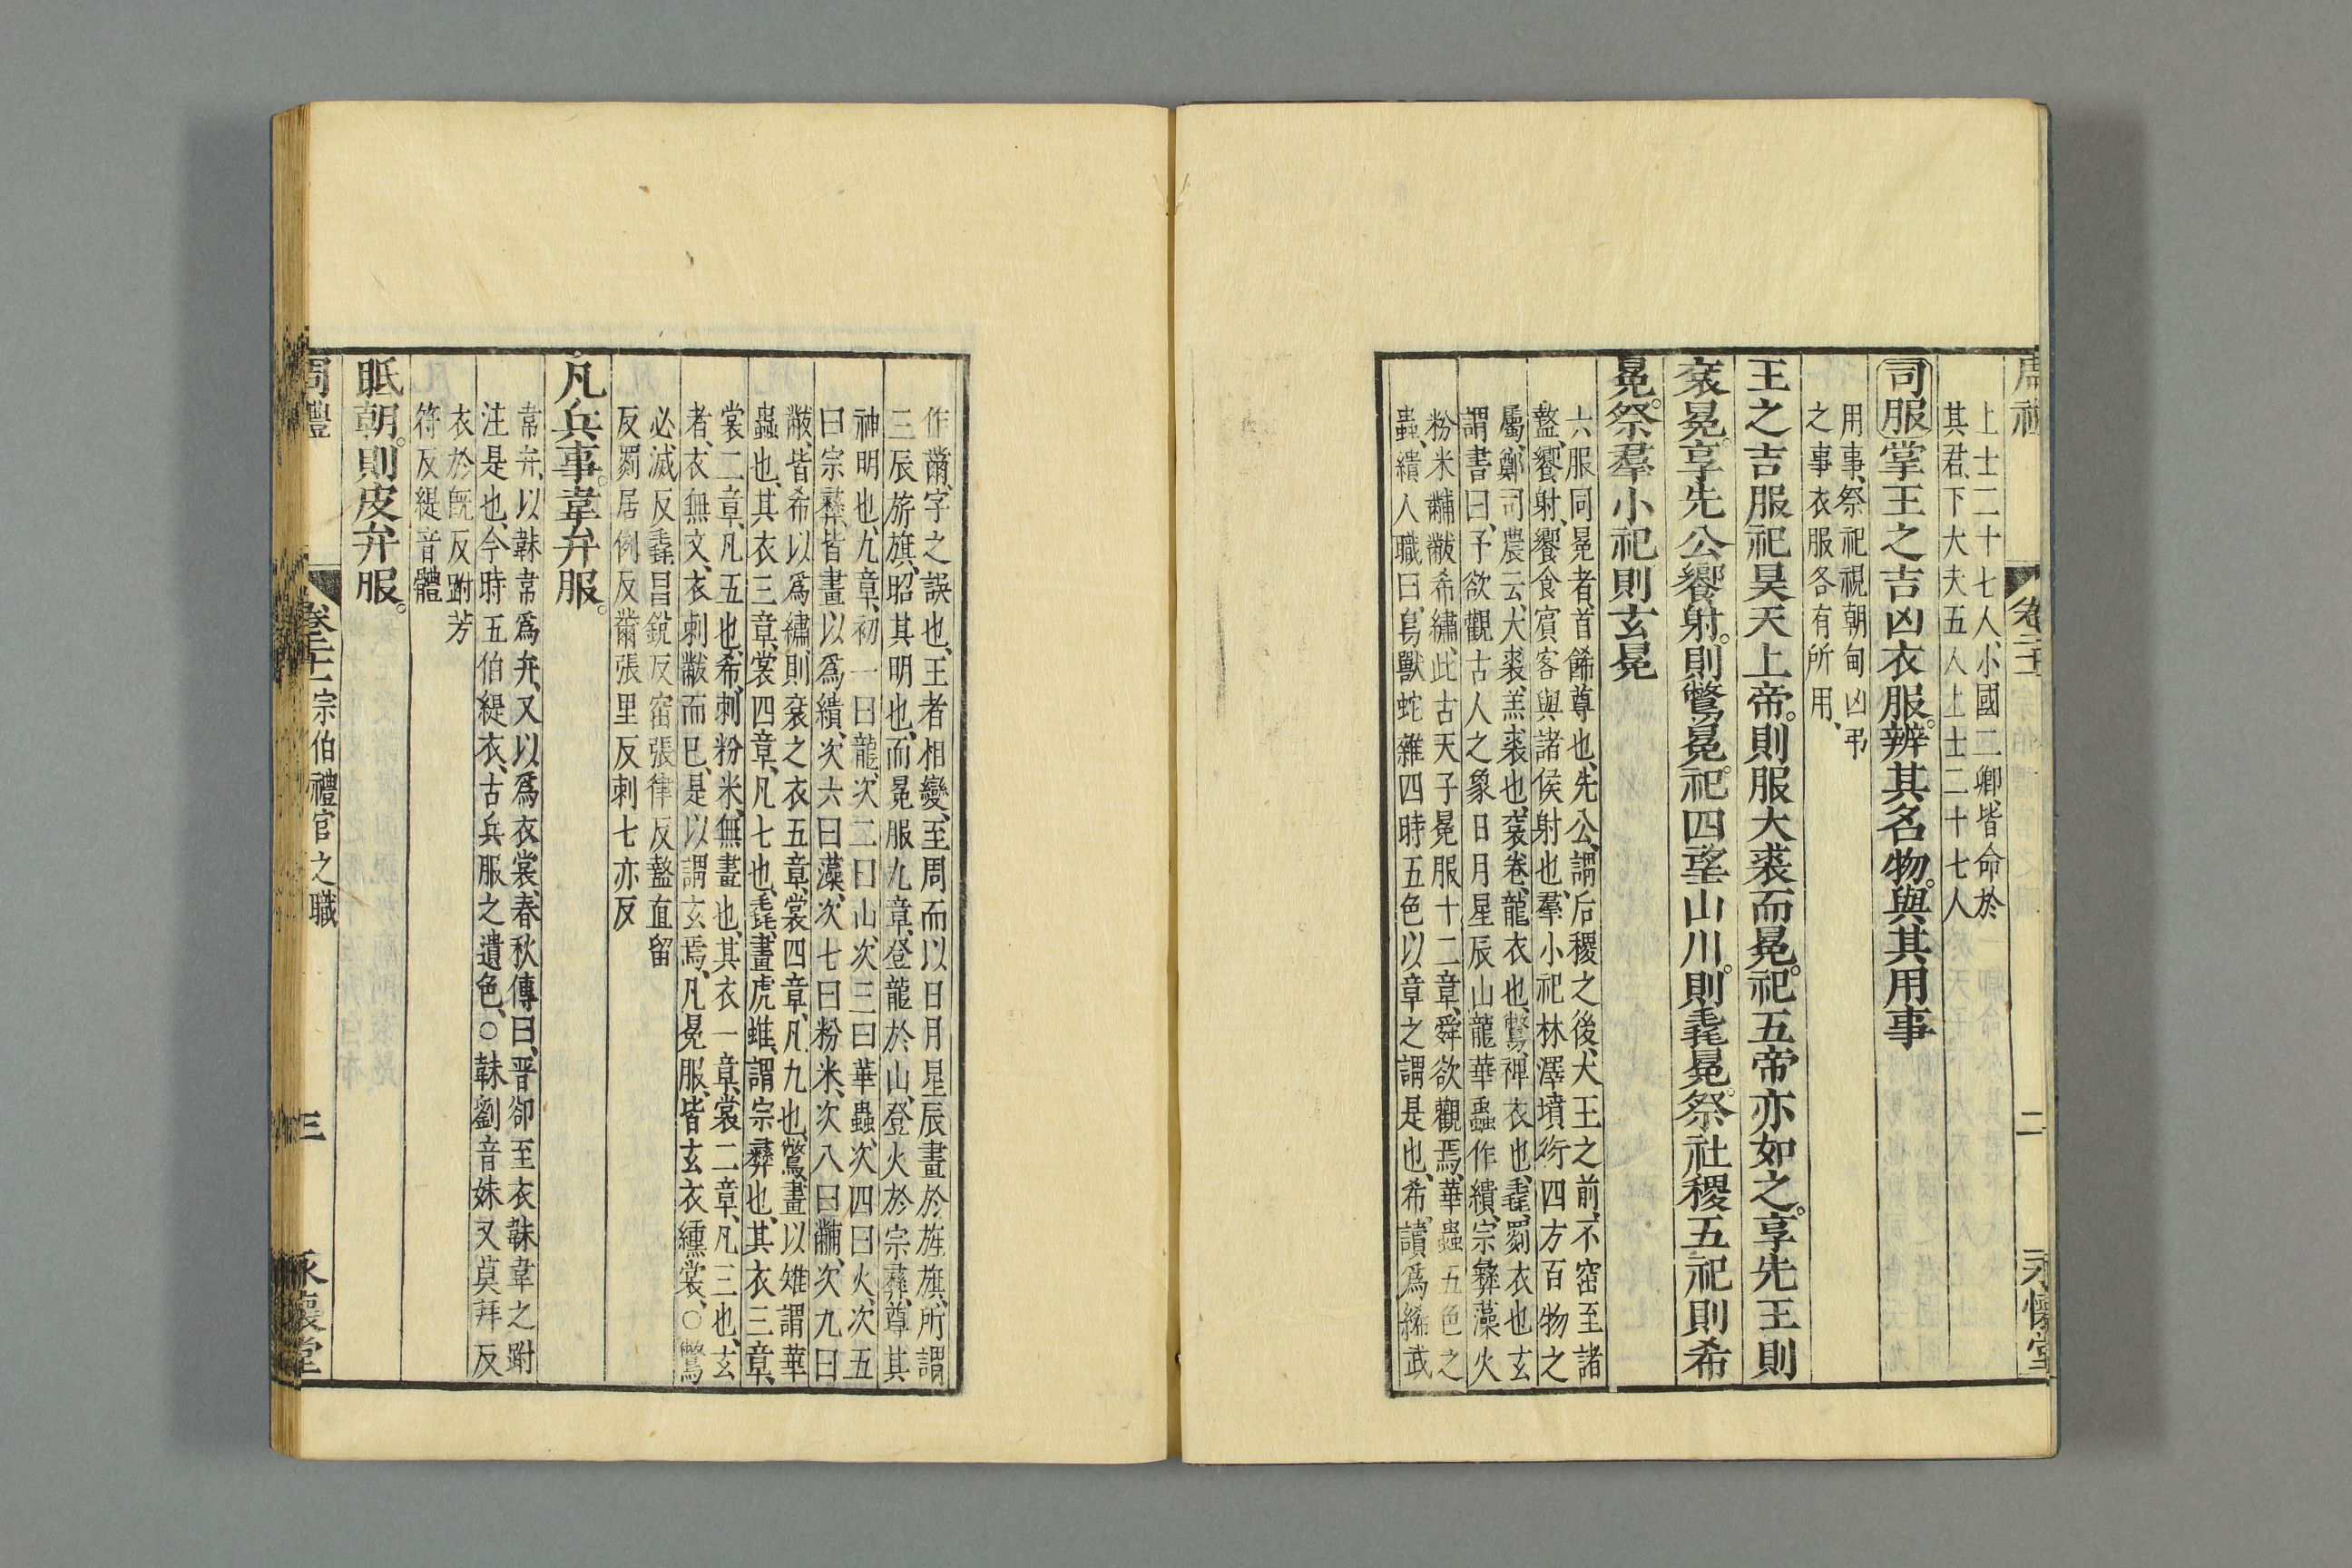 周禮
卷二十一
二
永懷堂
上士二十七人、小國二卿皆命於
其君、下大夫五人上士二十七人
司服掌王之吉凶衣服。辨其名物。與其用事
用事、祭祀視朝甸凶弔
之事衣服各有所用、
王之吉服祀昊天上帝。則服大裘而冕。祀五帝亦如之。享先王則
袞冕。享先公饗射。則鷩冕。祀四望山川。則毳冕。祭社稷五祀則希
冕。祭羣小祀則玄冕
六服同冕者、首飾尊也、先公、謂后稷之後、大王之前、不窋至諸
盩、饗射、饗食賓客與諸侯射也、羣小祀林澤墳衍四方百物之
屬、鄭司農云、大裘羔裘也、袞卷、龍衣也、鷩、裨衣也、毳、罽衣也玄
謂書曰、予欲觀古人之象日月星辰山龍華蟲作繢、宗彝藻火
粉米黼黻希繡、此古天子冕服十二章、舜欲觀焉、華蟲五色之
蟲、繢人職曰、鳥獸蛇雜四時五色以章之謂是也、希、讀爲絺或
作黹、字之誤也、王者相變、至周而以日月星辰畫於旌旗、所謂
三辰旂旗、昭其明也、而冕服九章、登龍於山、登火於宗彝、尊其
神明也、九章、初一曰龍、次二曰山、次三曰華蟲、次四曰火、次五
曰宗彝、皆畫以爲繢、次六曰藻、次七曰粉米、次八曰黼、次九曰
黻、皆希以爲繡、則袞之衣五章、裳四章、凡九也、鷩畫以雉謂華
蟲也、其衣三章、裳四章、凡七也、毳、畫虎蜼、謂宗彝也、其衣三章、
裳二章、凡五也、希、刺粉米、無畫也、其衣一章、裳二章、凡三也、玄
者、衣無文、衣刺黻而已、是以謂玄焉、凡冕服、皆玄衣纁裳、○鷩
必滅反毳昌銳反窋張律反盩直留
反罽居例反黹張里反刺七亦反
凡兵事。韋弁服。
常弁、以韎韋爲弁、又以爲衣裳、春秋傳曰、晋卻至衣韎韋之跗
注是也、今時五伯緹衣、古兵服之遺色、○韎劉音妹又莫拜反
衣於旣反跗芳
符反緹音體
眡朝。則皮弁服。
周禮
卷二十一宗伯禮官之職
三
永懷堂